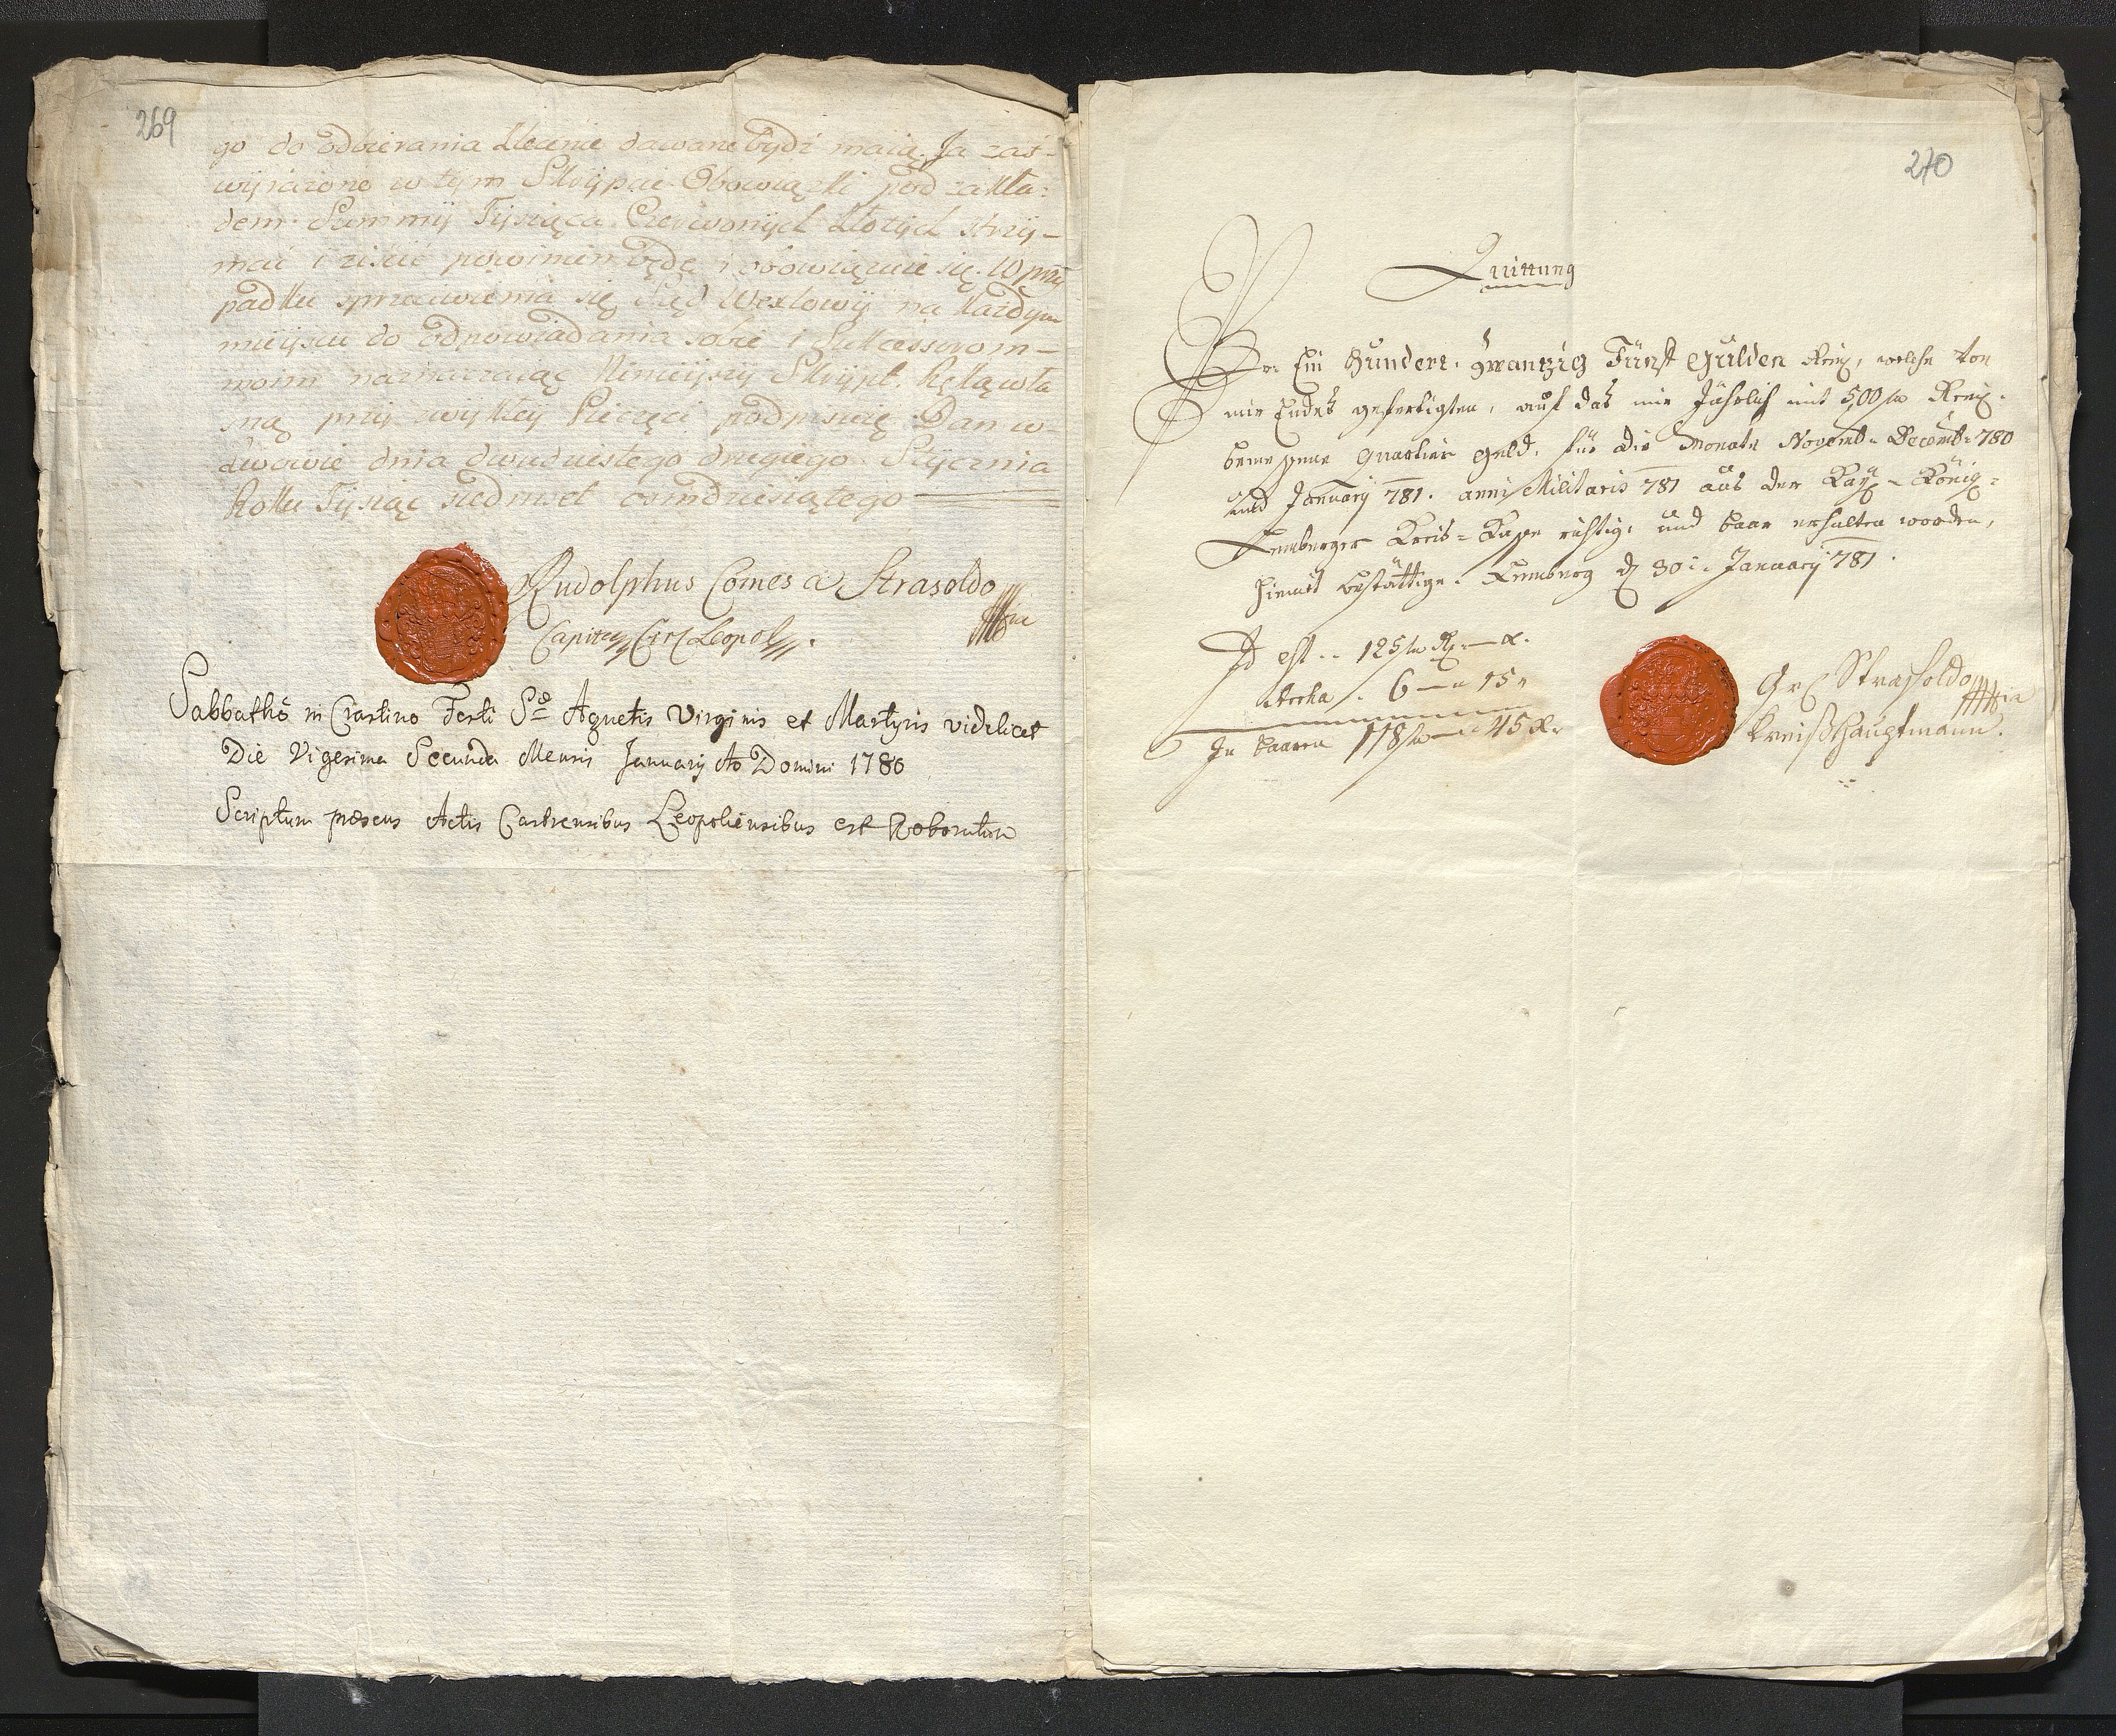 269
go do odbierania Zlecenie dawane bydź maią. Ja zaś
wyrażone w tym Skrypcie Obowiązki pod zakła=
dem Summy Tysiąca Czerwonych Złotych strzy-
mać i ziścić powinien będę i obowiązuie się. W przy
padku sprzeciwienia się Sąd Wexlowy na każdym
mieyscu do odpowiadania sobie i Sukcessorom-
moim naznaczaiąc Ninieyszy Skrypt. Ręką wła
sną przy zwykłey Pieczęci podpisuię. Dan w
Lwowie dnia dwudziestego drugiego Stycznia
Roku Tysiąc siedmset osmdziesiątego
Rudolphus Comes a Strasoldo
Capitan Circ Leopol
Sabbatho in Crastino Festi Sae Agnetis Virginis et Martyris videlicet
Die Vigesima Secunda Mensis January Ao Domini 1780
Scriptum præsens Actis Castrensibus Leopoliensibus est Roboratum
270
Quittung
Per Ein Hundert, zwantzig Fünf Gulden Rein, welche von
mir Endes gefertigten, auf das mir Jährlich mit 500 fr Rein.
bemessene Quartier Geld, für die Monate Novemb. Decemb. 780
und January 781. anni Militaris 781 aus der Kay. König=
Lemberger Kreis=Kasse richtig, und baar erhalten worden,
hiemit bestättige. Lemberg d 30. January 781.
Id est .. 125 fr — x.
Arrha . 6 — 15
In baaren 118 fr — 45 x.
Gr Strassoldo
Kreißhauptmann.